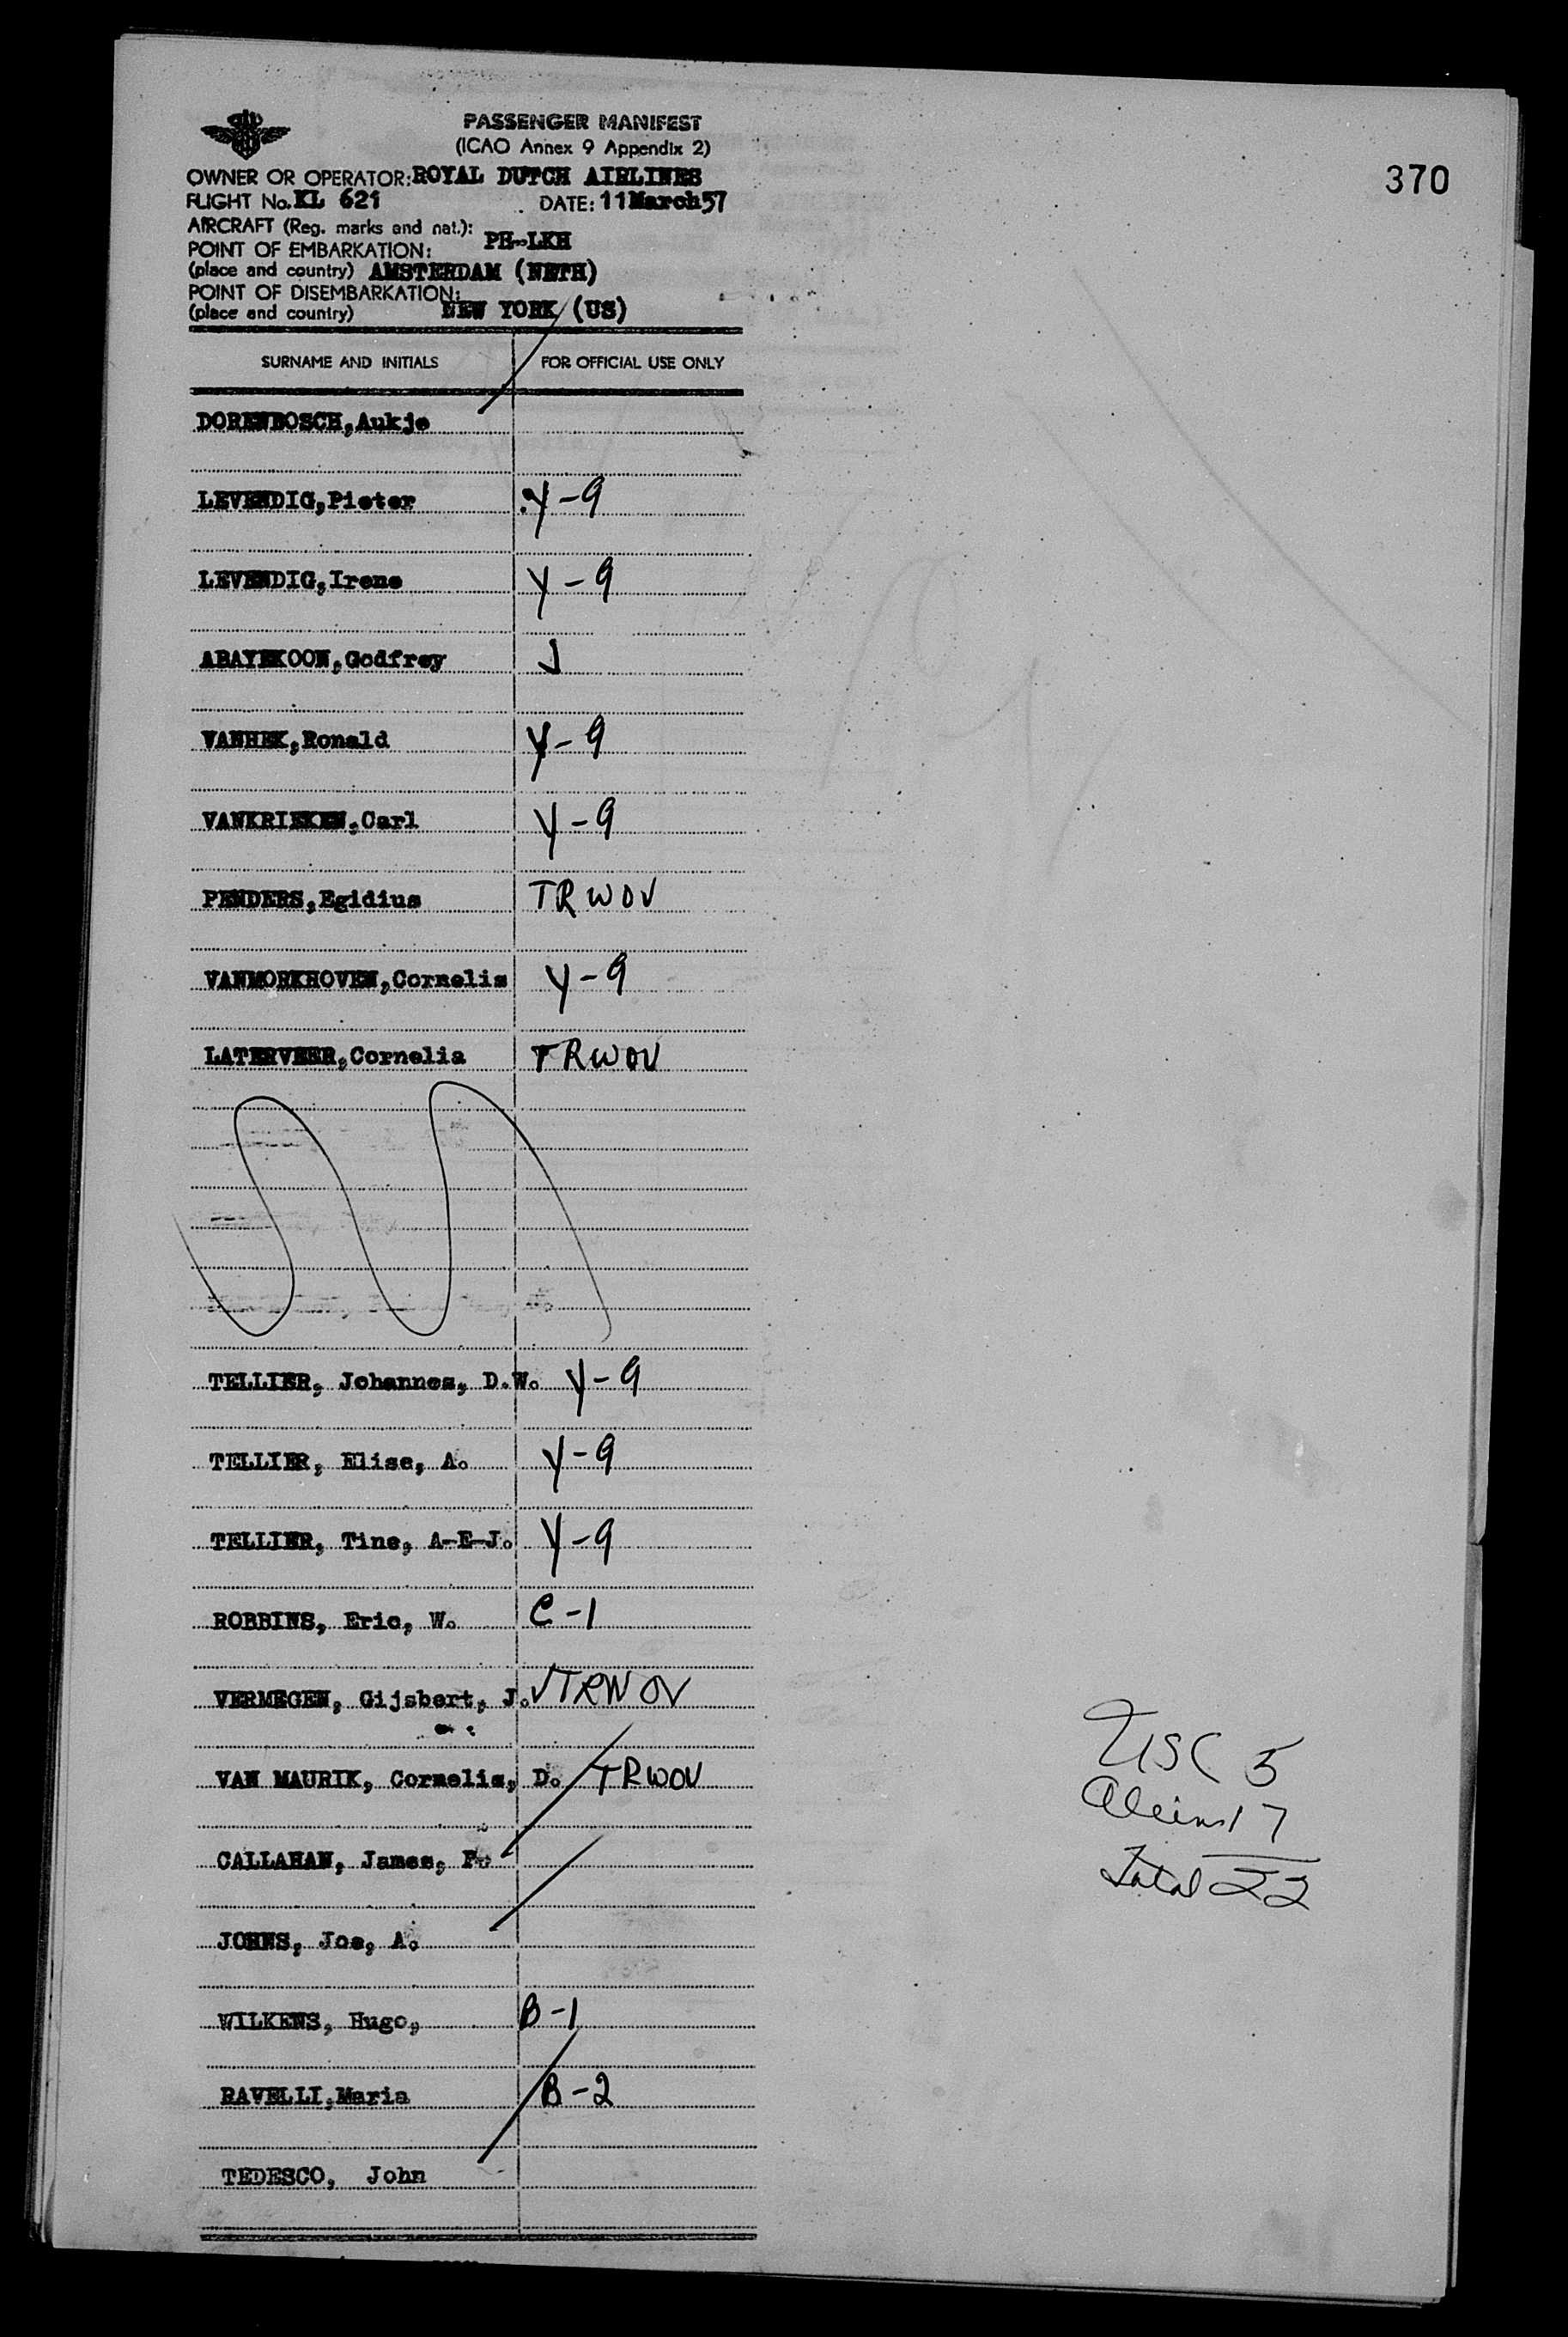 370
PASSENGER MANIFEST
(ICAO Annex 9 Appendix 2)
OWNER OR OPERATOR: ROYAL DUTCH AIRLINES
FLIGHT No. KL 621 DATE: 11March57
AIRCRAFT (Reg. marks and nat.): PH-LKH
POINT OF EMBARKATION:
(place and country) AMSTERDAM (NETH)
POINT OF DISEMBARKATION:
(place and country) NEW YORK (US)
SURNAME AND INITIALS FOR OFFICIAL USE ONLY
DORENBOSCH,Aukje
LEVENDIG,Pieter Y-9
LEVENDIG,Irene Y-9
ABAYEKOON,Godfrey J
VANHEK,Ronald Y-9
VANKRIEKEN,Carl Y-9
PENDERS,Egidius TRWOV
VANMORKHOVEN,Cornelis Y-9
LATERVEER,Cornelia TRWOV
TELLIER, Johannes, D.W. Y-9
TELLIER, Elise, A. Y-9
TELLIER, Tine, A-E-J. Y-9
ROBBINS, Eric, W. C-1
VERMEGEN, Gijsbert, J. √TRWOV
VAN MAURIK, Cornelis, D. TRWOV
CALLAHAN, James, F.
JOHNS, Joe, A.
WILKENS, Hugo, B-1
RAVELLI,Maria B-2
TEDESCO, John
USC 5
Aliens 17
Total 22